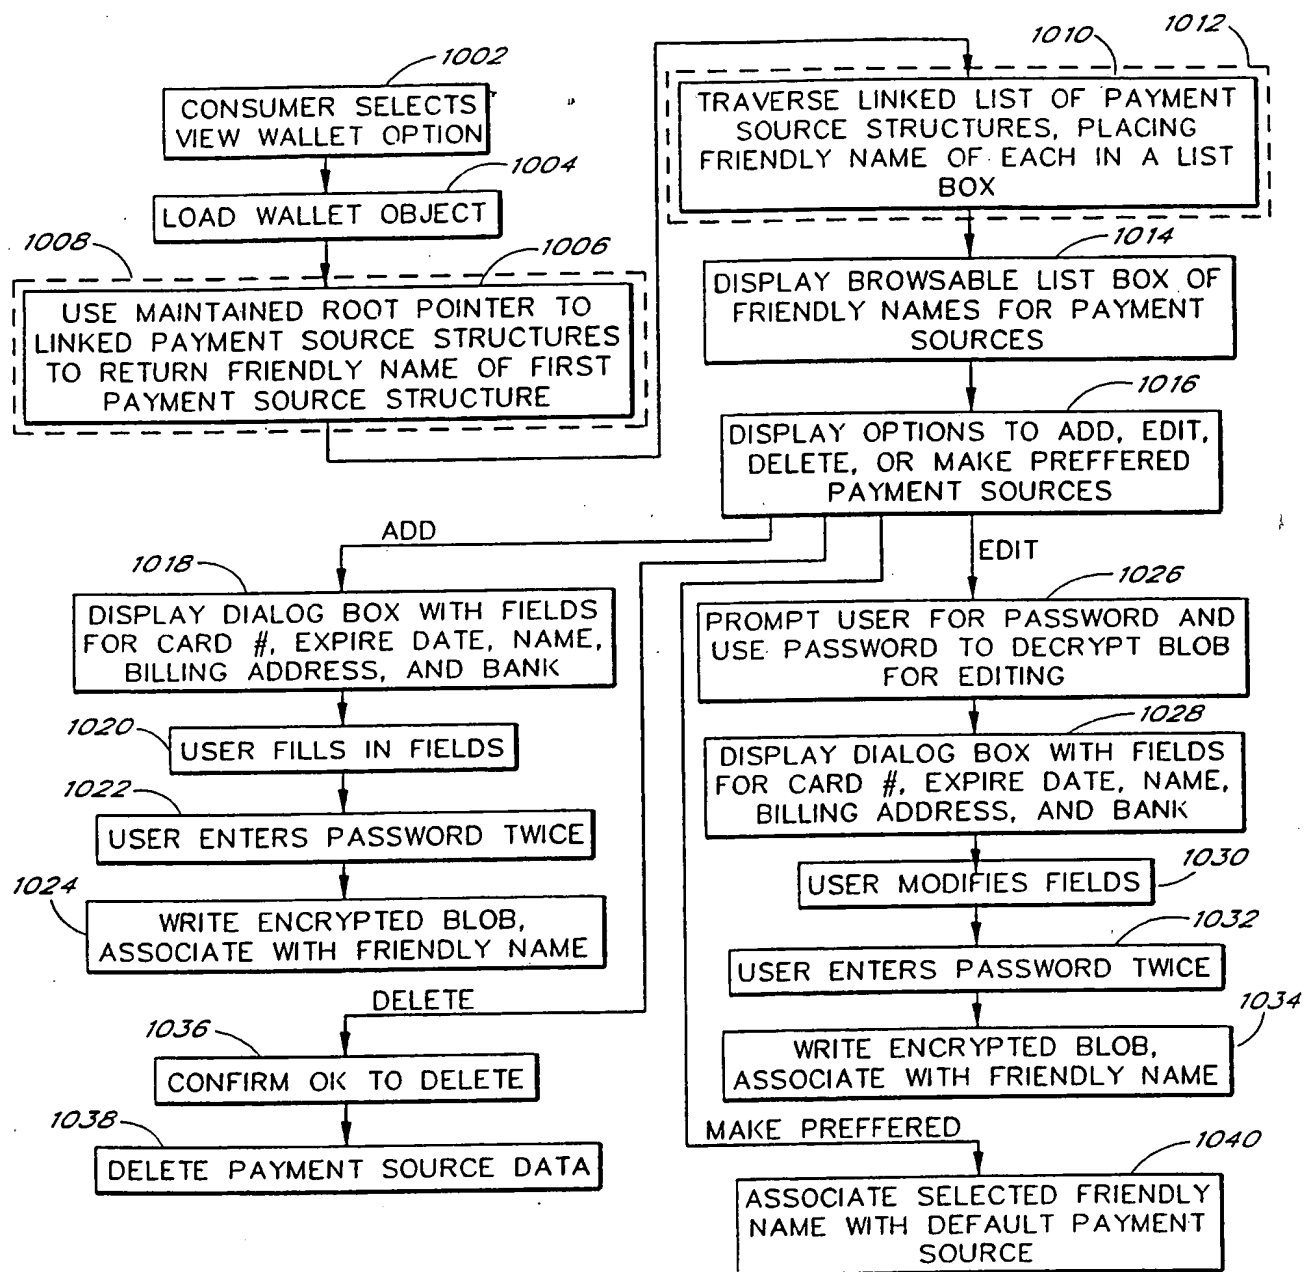 1002
CONSUMER SELECTS
VIEW WALLET OPTION
1004
LOAD WALLET OBJECT
1008
1006
USE MAINTAINED ROOT POINTER TO
LINKED PAYMENT SOURCE STRUCTURES
TO RETURN FRIENDLY NAME OF FIRST
PAYMENT SOURCE STRUCTURE
1010
1012
TRAVERSE LINKED LIST OF PAYMENT
SOURCE STRUCTURES, PLACING
FRIENDLY NAME OF EACH IN A LIST
BOX
1014
DISPLAY BROWSABLE LIST BOX OF
FRIENDLY NAMES FOR PAYMENT
SOURCES
1016
DISPLAY OPTIONS TO ADD, EDIT,
DELETE, OR MAKE PREFFERED
PAYMENT SOURCES
ADD
1018
DISPLAY DIALOG BOX WITH FIELDS
FOR CARD #, EXPIRE DATE, NAME,
BILLING ADDRESS, AND BANK
1020
USER FILLS IN FIELDS
1022
USER ENTERS PASSWORD TWICE
1024
WRITE ENCRYPTED BLOB,
ASSOCIATE WITH FRIENDLY NAME
EDIT
1026
PROMPT USER FOR PASSWORD AND
USE PASSWORD TO DECRYPT BLOB
FOR EDITING
1028
DISPLAY DIALOG BOX WITH FIELDS
FOR CARD #, EXPIRE DATE, NAME,
BILLING ADDRESS, AND BANK
1030
USER MODIFIES FIELDS
1032
USER ENTERS PASSWORD TWICE
1034
WRITE ENCRYPTED BLOB,
ASSOCIATE WITH FRIENDLY NAME
DELETE
1036
CONFIRM OK TO DELETE
1038
DELETE PAYMENT SOURCE DATA
MAKE PREFFERED
1040
ASSOCIATE SELECTED FRIENDLY
NAME WITH DEFAULT PAYMENT
SOURCE